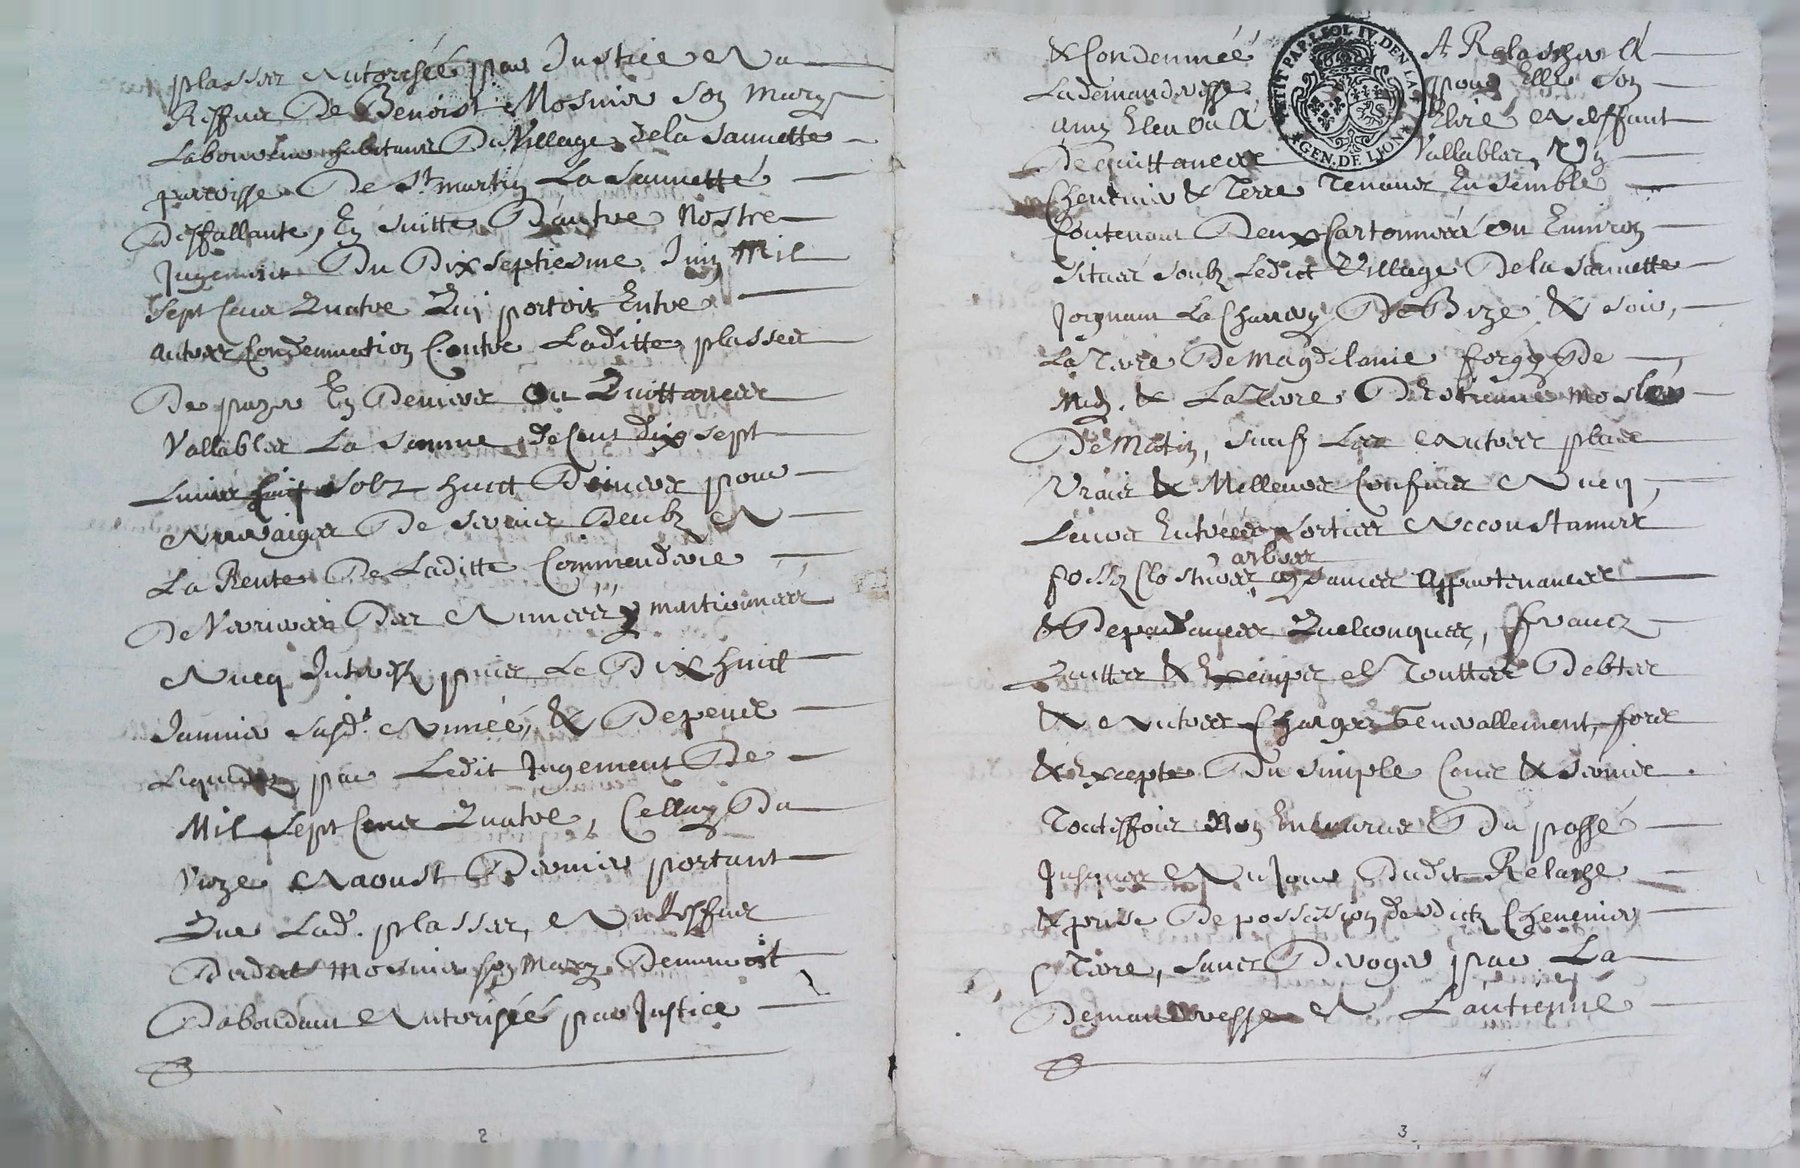 plasses Autorisée par Justice Au
Reffus De Benoist Mosnier Son mary
Laboureur habitans Du Village dela Sauuette
parroisse De St martin La Sauuetté
Deffallante, En suitte D'autre Nostre
Jugement Du Dix septiesme Juin Mil
Sept Cens Quatre Qui portoit Entre
autres Condemnation Contre Laditte plasses
De payer En Deniers Ou Quittances
Vallables La Somme de Cent dix sept
Liures huit Solz huict Deniers pour
Arrairages De seruis Deubz A
La Rente De Laditte Commenderie
De Verrieres Des Années y mantionnées
Aueq Interestz puis Le Dix huict
Januier Susd. Année, & Depens
Liquidez par Ledit Jugement De
Mil Sept Cens Quatre, Celluy Du
Unze Aaoust Dernier portant
Que Lad. plasses, Au Reffus
Dudit Mosnier son Mary Demeuroit
Dabondant Autorisée par Justice
2
& Condemnée A Relascher A
La demanderesse pour Elle Son
amy Eleu Ou A Elire Aultant
De quittances Vallables, Un
Cheneuier & Terre Tenant Ensemble
Contenant Deux Cartonnées Ou Enuiron
Situés Soubz Ledict Village Dela Sauuette
Joignant Le Charrey De Bize & Soir,
La Terre De Magdelaine
Midy. & La Terre D'Estienne
De Matin, Sauf Les Autres plus
Vrais & Melleurs Confins Aueq
Leurs Entrées Sorties Accoustumés
arbres
fossez Clostures aysances Appartenances
& Dependances Quelconques, francz
Quittes & Exempts de Touttes Debtes
& Autres Charges Generallement, fors
& Excepte Du simple Cens & Seruis
Touteffois Non Encourus Du passé
Jusques Au Jour Dudit Relaxe
& prise De possession desdictz Cheneuier
& Terre, Sans Deroger par La
Demanderesse A L'antienne
3
PETIT PAP. I SOL IV. DEN LA F.
GEN. DE LION